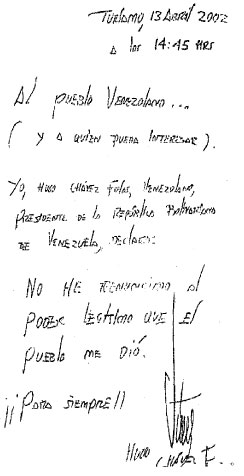 Turiamo, 13 Abril 2002
a las 14:45 HRS
Al pueblo Venezolano...
(y a quien pueda interesar).
Yo, Hugo Chávez Frías, Venezolano,
Presidente de la República Bolivariana
de Venezuela, declaro:
No he renunciado al
poder legítimo que el
pueblo me dió.
¡¡Para siempre!!
Hugo
Chávez F...